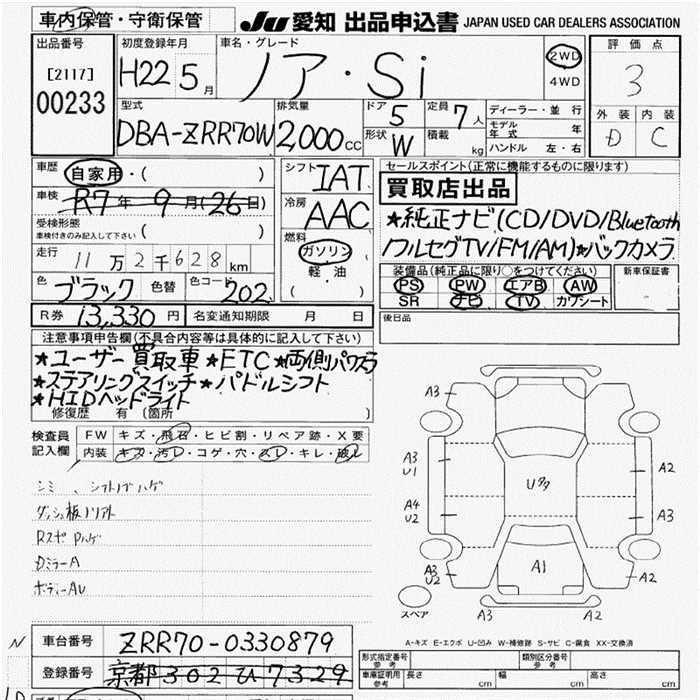 車内保管・守衛保管
JU 愛知 出品申込書 JAPAN USED CAR DEALERS ASSOCIATION
出品番号
[2117]
00233
初度登録年月
H22 5月
車名・グレード
ノア・Si
2WD
4WD
評価点
3
外装 内装
D C
型式
DBA-ZRR70W
排気量
2,000cc
ドア 5
形状 W
定員 7人
積載 kg
ディーラー・並行
モデル年式 年
ハンドル 左・右
車歴 自家用・( )
車検 R7年9月(26日)
受検形態
車検付きのみ記入して下さい ( )
走行 11万2千628km
色 ブラック 色替 色コード 202
シフト IAT
冷房 AAC
燃料
ガソリン
軽・油
( )
セールスポイント(正常に機能するものに限ります)
買取店出品
★純正ナビ(CD/DVD/Bluetooth
フルセグTV/FM/AM)★バックカメラ
装備品(純正品に限り○をつけてください)
PS PW エアB AW
SR ナビ TV カワシート
新車保証書
R券 13,330円 名変通知期限 月 日
後日品
注意事項申告欄(不具合内容等は具体的に記入して下さい)
★ユーザー買取車★ETC★両側パワスラ
★ステアリングスイッチ★パドルシフト
★HIDヘッドライト
修復歴 有 (箇所 )
検査員
記入欄
FW キズ・飛石・ヒビ割・リペア跡・X要
内装 キズ・汚レ・コゲ・穴・スレ・キレ・破レ
シミ、シフトノブハゲ
ダッシュ板ノリアト
RスポPハゲ
DミラーA
ボディーAU
A3
A3
U1
A4
U2
A3
U2
Uタタ
A1
A2
A3
A2
A3
A2
スペア
A-キズ E-エクボ U-凹み W-補修跡 S-サビ C-腐食 XX-交換済
N
車台番号 ZRR70-0330879
登録番号 京都302ひ7329
型式指定番号
参考
類別区分番号
参考
車庫証明用
参考
長さ cm 幅 cm 高さ cm